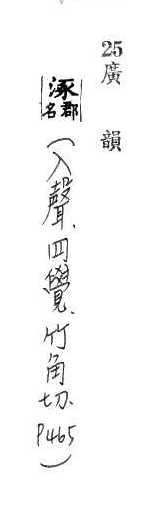 25廣韻
涿郡名(入聲、四覺、竹角切、P465)